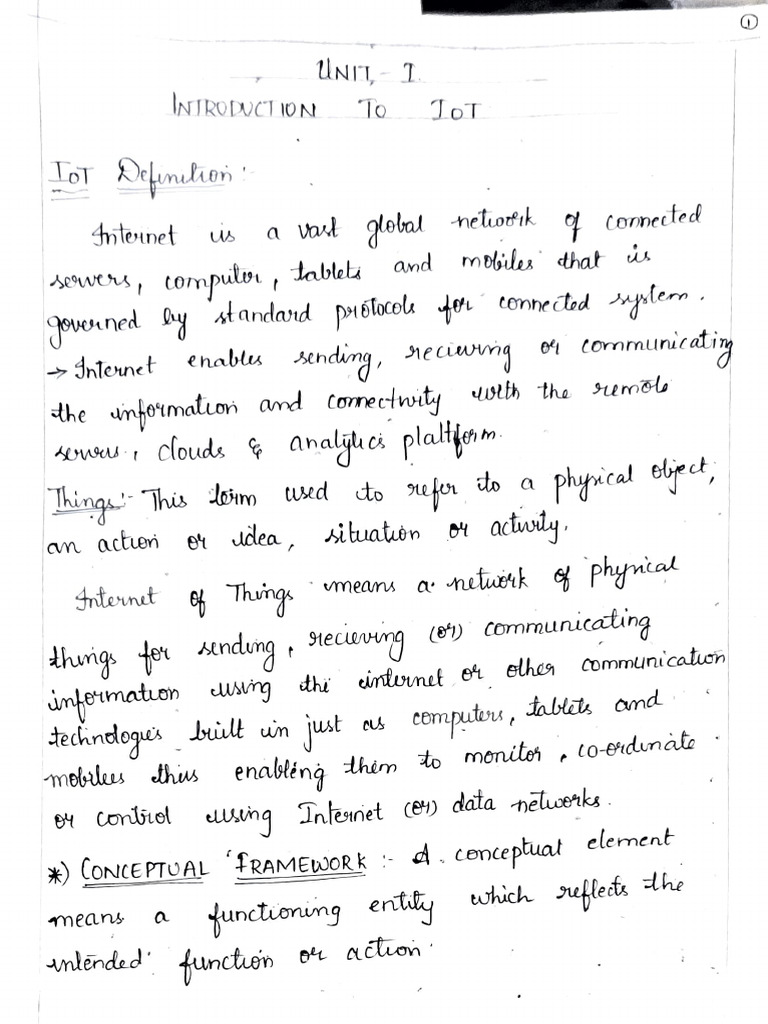 ①
UNIT - I
INTRODUCTION TO IOT
IOT Definition :-
Internet is a vast global network of connected
servers, computer, tablets and mobiles that is
governed by standard protocols for connected system.
→ Internet enables sending, recieving or communicating
the information and connectivity with the remote
servers, clouds & analytics plaltform.
Things :- This term used to refer to a physical object,
an action or idea, situation or activity.
Internet of Things means a network of physical
things for sending, recieving (or) communicating
information using the internet or other communication
technologies built in just as computers, tablets and
mobilees thus enabling them to monitor, co-ordinate
or control using Internet (or) data networks.
*) CONCEPTUAL FRAMEWORK :- A conceptual element
means a functioning entity which reflects the
intended function or action